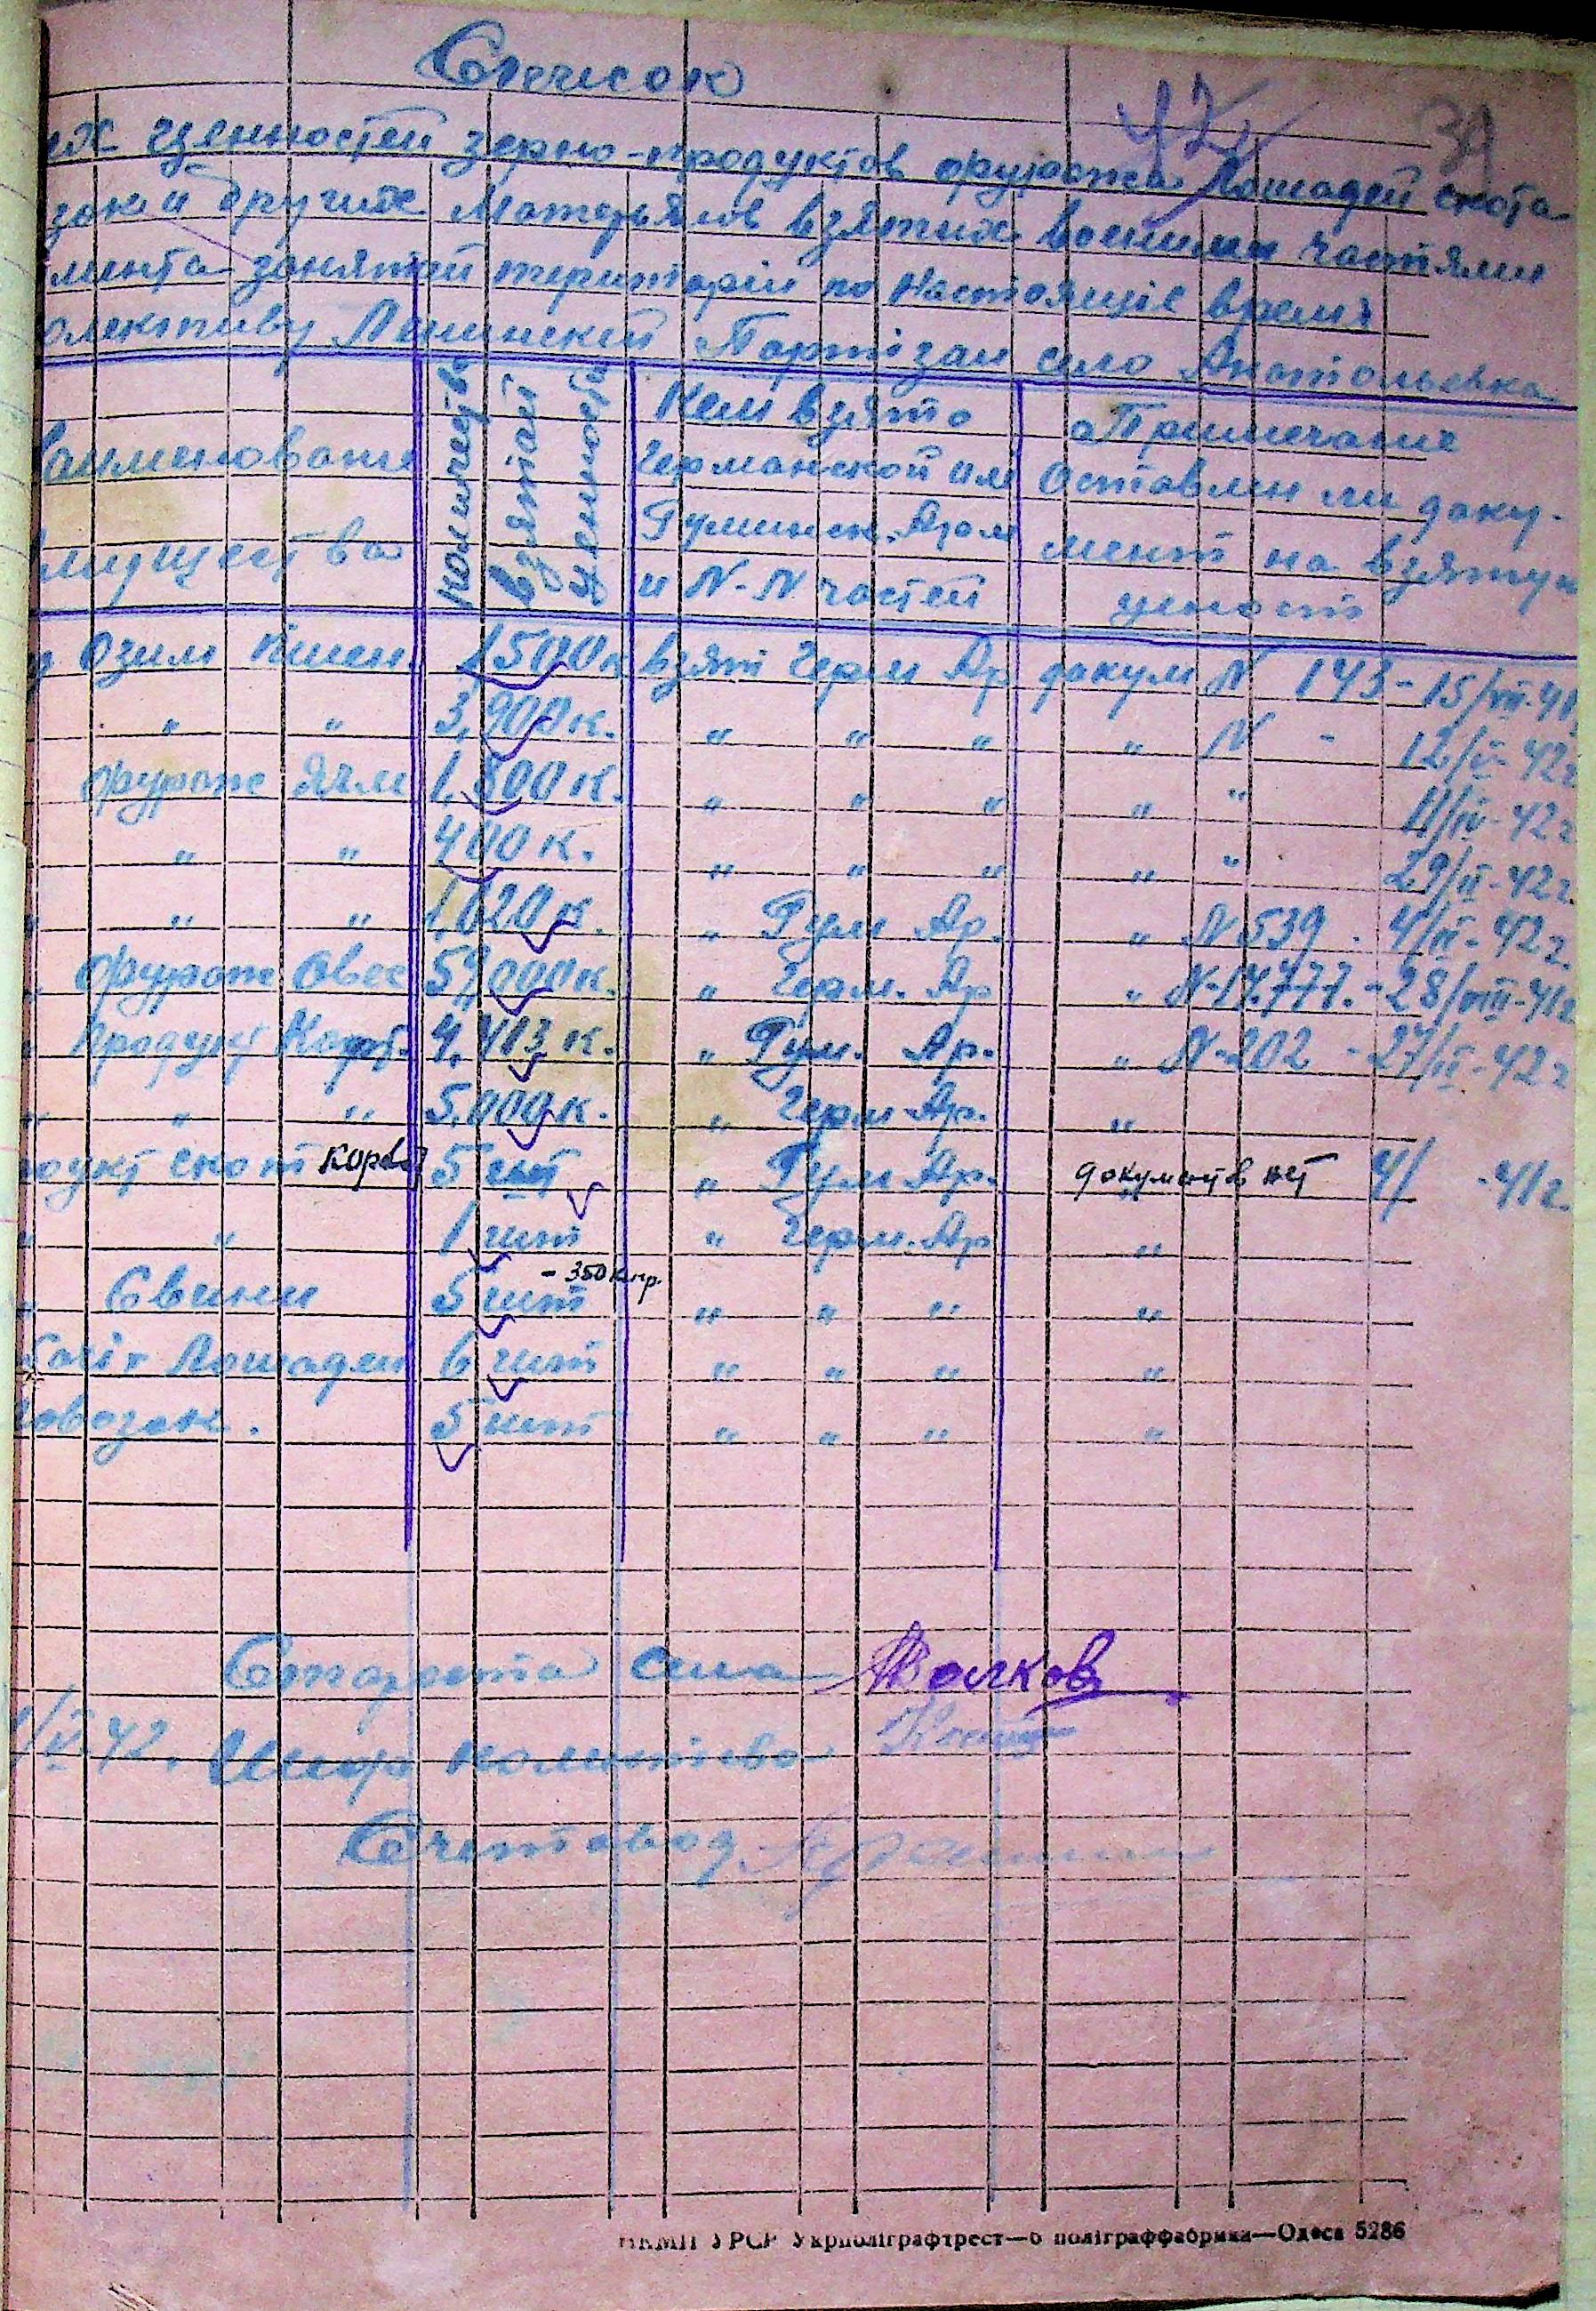 Список
42 39
их ценностей зерно-продуктов фуража Лошадей скота
зок и других Матерялов взятих военими частями
мента занятой територіи по настоящіе время
олективу Ленинский Партізан село Анатольевка
Наименование имущества
количество взятой ценности
Кем взято Германской или Румынск. Арм и N-N частей
Примечание Оставлен ли документ на взятую ценность
Озим Пшен. 1500к взят Герм Ар докум N 143-15/VII-41
" " 3,900к. " " " " N - 12/II-42г
фураж Ячм 1,800к. " " " " " 11/IV-42г
" " 400к. " " " " " 29/II-42г.
" " " 1,020к. " Рум Ар. " N539. 4/II-42г.
" фураж Овес 59,000к. " Герм. Ар " N-17.777.-28/VIII-41г
" Продукт Карт. 4,413к. " Рум. Ар. " N-202-27/II-42г
" " " 5,000к. " Герм Ар. "
одукт скот корова 5 шт " Рум Ар. документов нет 4/ -41г.
" " 1 шт " Герм. Ар "
" Свини 5 шт - 350 кгр. " " " "
Лошадми 6 шт " " " "
овозок. 5 шт " " " "
Старота села Волков
/IV 42.
Счетовод
НКМП УРСР Укрполіграфтрест—6 поліграффабрика—Одеса 5286